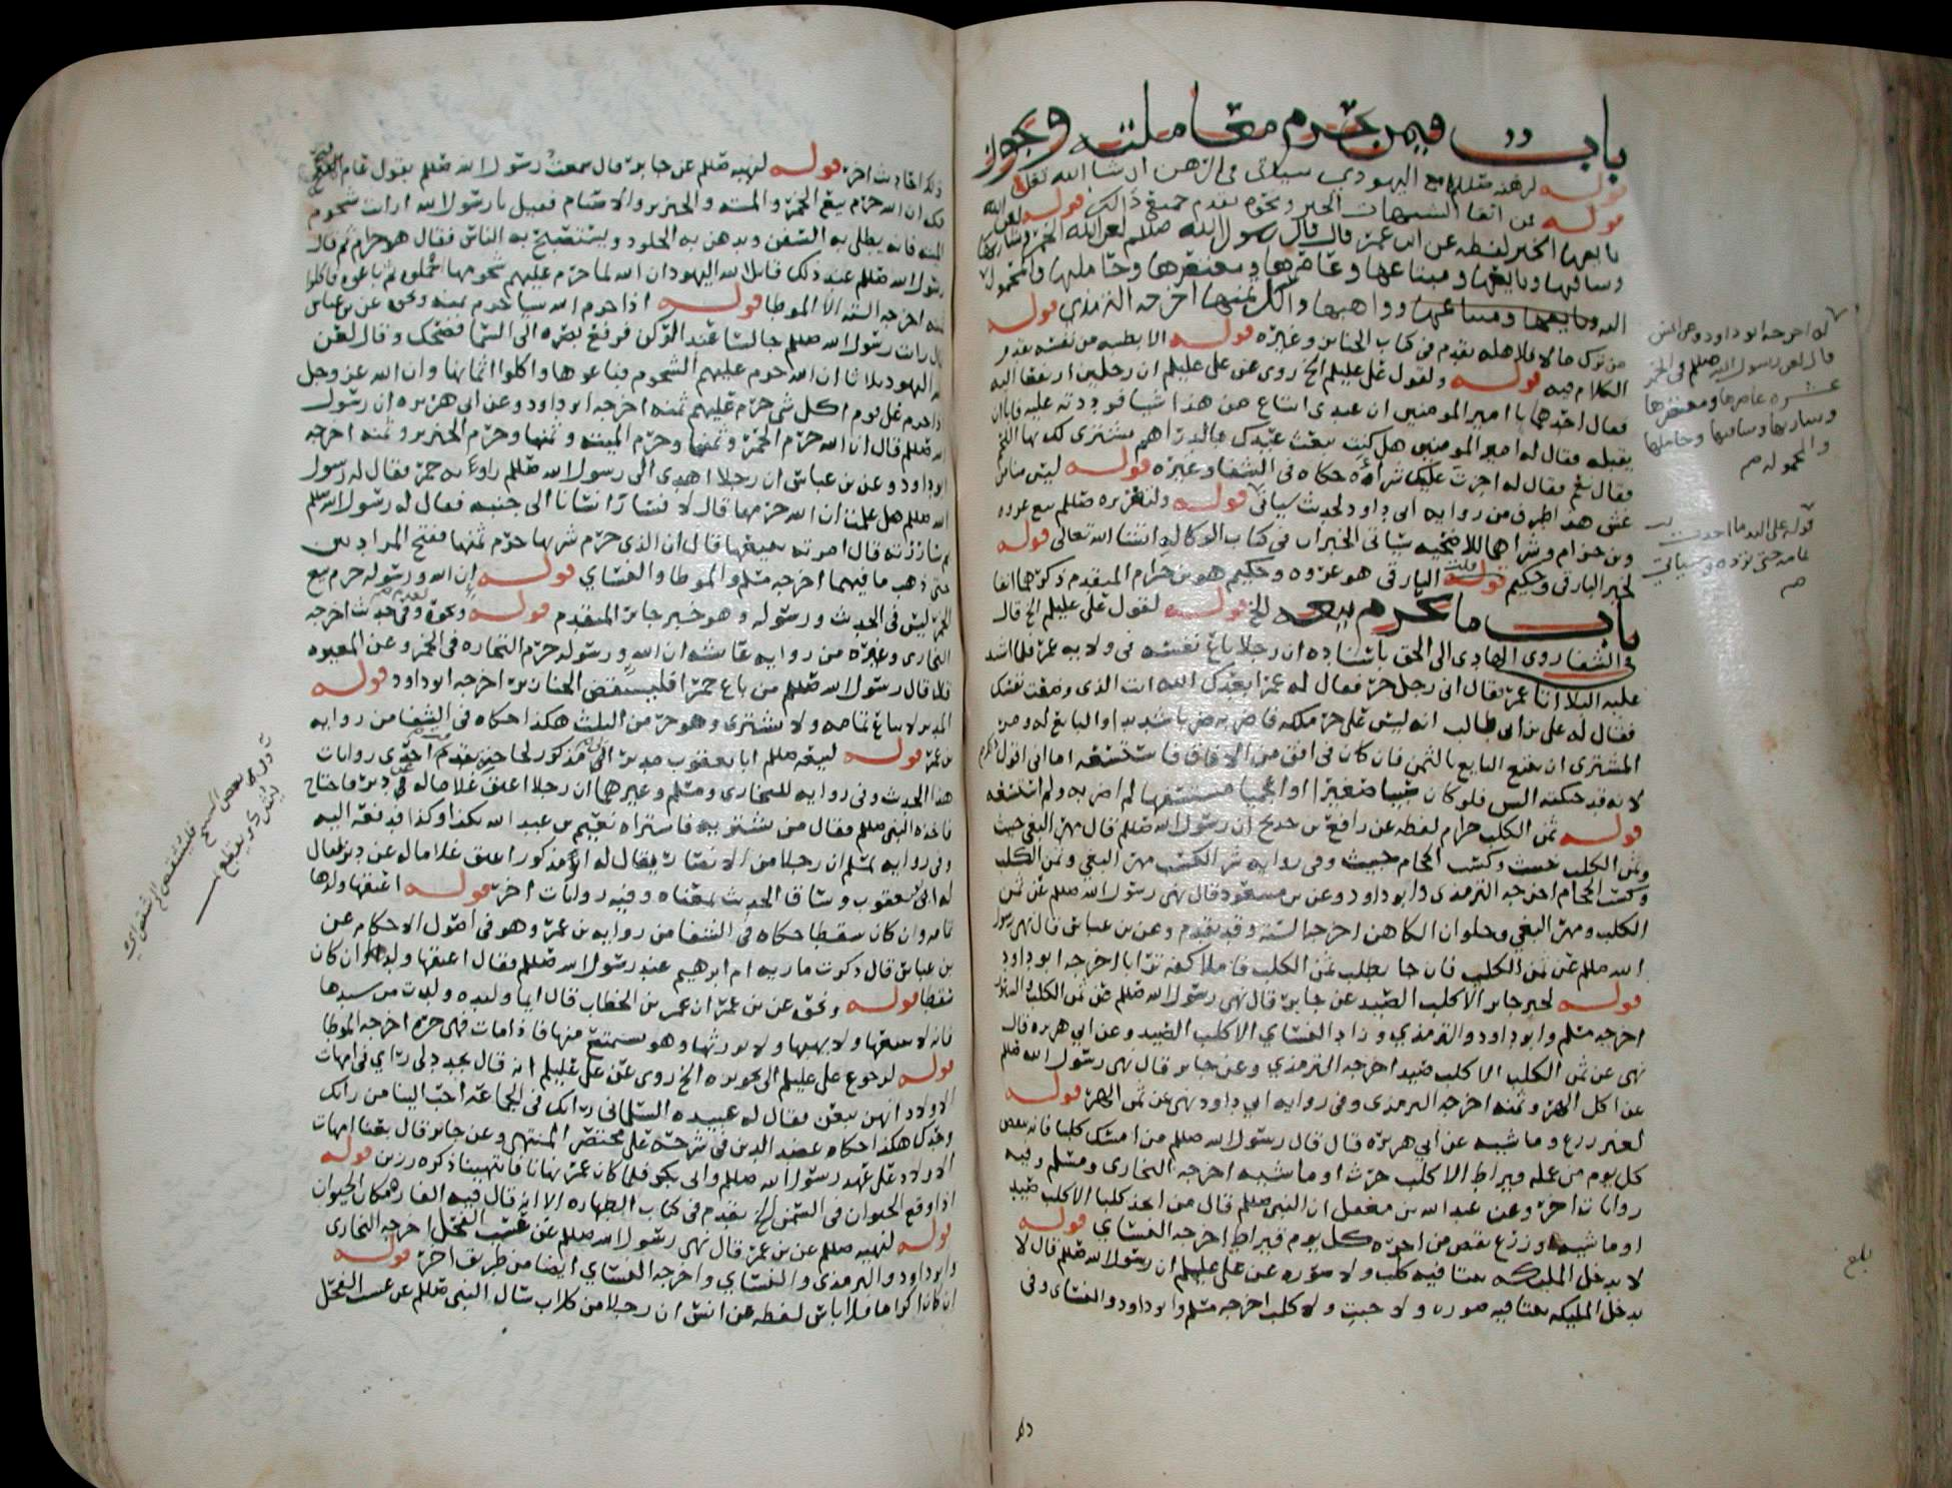 باب فيمن تحرم معاملته وتجوز
قوله لرهنه صللم مع اليهودي سياتي في الرهن ان شا الله تعلى
قوله من اتقا الشبهات الخبر ونحوه تقدم جميع ذلك قوله لعن الله
بايعها الخبر لفظه عن ابن عمر قال قال رسول الله صللم لعن الله الخمر وشاربها
وساقيها وبايعها ومبتاعها وعاصرها ومعتصرها وحاملها والمحمولة
اليه وواهبها واكل ثمنها اخرجه الترمذي قوله
من ترك مالا فلاهله تقدم في كتاب الجنايز وغيره قوله الا بطيبه من نفسه تقدم
الكلام فيه قوله ولقول علي عليلم الخ روى عن علي عليلم ان رجلين ارتفعا اليه
فقال احدهما يا امير المومنين ان عبدي ابتاع من هذا شيا فرددته عليه فابا ان
يقبله فقال له امير المومنين هل كنت تبعث عبدك بالدراهم يشتري لك بها اللحم
فقال نعم فقال له اجزت عليك شراؤه حكاه في الشفا وغيره قوله ليس منا من
غش هذا طرف من رواية ابي داود لحديث سياتي قوله ولتقريره صللم بيع عروه
وبن حزام وشراهما للاضحيه سياتي الخبران في كتاب الوكاله انشا الله تعالى قوله
لخبر البارقي وحكيم قلت البارقي هو عروه وحكيم هو بن حزام المتقدم ذكرهما انفا
باب ما يحرم بيعه الخ قوله لقول علي عليلم الخ قال
في الشفا روى الهادي الى الحق باسناده ان رجلا باع نفسه في ولاية عمر فلما اشتد
عليه البلا اتا عمر فقال اني رجل حر فقال له عمر ابعدك الله انت الذي وضعت نفسك
فقال له علي بن ابي طالب انه ليس على حر ملكه فاضربه ضربا شديدا والبايع له ومر
المشتري ان يتبع البايع بالثمن فان كان في افق من الافاق فاستسعه اما اني اقول لكم
لانه قد حكمته السن فلو كان صبيا صغيرا او اعجميا مستسفها لم اضربه ولم استسعه
قوله ثمن الكلب حرام لفظه عن رافع بن خديج ان رسول الله صللم قال مهر البغي خبيث
وثمن الكلب خبيث وكسب الحجام خبيث وفي رواية شر الكسب مهر البغي وثمن الكلب
وكسب الحجام اخرجه الترمذي وابو داود وعن بن مسعود قال نهى رسول الله صللم عن ثمن
الكلب ومهر البغي وحلوان الكاهن اخرجه الستة وقد تقدم وعن بن عباس قال نهى رسول
الله صللم عن ثمن الكلب فان جا يطلب ثمن الكلب فاملا كفه ترابا اخرجه ابو داود
قوله لخبر جابر الا كلب الصيد عن جابر قال نهى رسول الله صللم عن ثمن الكلب والسنور
اخرجه مسلم وابو داود والترمذي وزاد النساي الا كلب الصيد وعن ابي هريره قال
نهى عن ثمن الكلب الا كلب صيد اخرجه الترمذي وعن جابر قال نهى رسول الله صللم
عن اكل الهر وثمنه اخرجه الترمذي وفي رواية ابي داود نهى عن ثمن الهر قوله
لغير زرع وماشيه عن ابي هريره قال قال رسول الله صللم من امسك كلبا فانه ينقص
كل يوم من عمله قيراط الا كلب حرث او ماشيه اخرجه البخاري ومسلم وفيه
روايات اخر وعن عبد الله بن مغفل ان النبي صللم قال من اتخذ كلبا الا كلب صيد
او ماشيه وزرع نقص من اجره كل يوم قيراط اخرجه النساي قوله
لا يدخل الملايكه بيتا فيه كلب ولا صوره عن علي عليلم ان رسول الله صللم قال لا
يدخل المليكه بيتا فيه صوره ولا جنب ولا كلب اخرجه مسلم وابو داود والنساي وفي
له اخرجه ابو داود وعن انس
قال لعن رسول الله صللم في الخمر
عشره عاصرها ومعتصرها
وشاربها وساقيها وحاملها
والمحموله صح
قوله على اليد ما اخذت
حتى ترده وسياتي
بلغ
ذلك احاديث اخر قوله لنهيه صللم عن جابر قال سمعت رسول الله صللم يقول عام الفتح
مكه ان الله حرم بيع الخمر والميته والخنزير والاصنام فقيل يا رسول الله ارايت شحوم
الميته فانه يطلى به السفن ويدهن به الجلود ويستصبح به الناس فقال هو حرام ثم قال
رسول الله صللم عند ذلك قاتل الله اليهود ان الله لما حرم عليهم شحومها اجملوه ثم باعوه فاكلوا
ثمنه اخرجه الستة الا الموطا قوله اذا حرم الله شيا حرم ثمنه ونحوه عن بن عباس
قال رايت رسول الله صللم جالسا عند الركن فرفع بصره الى السما فضحك وقال لعن
الله اليهود ثلاثا ان الله حرم عليهم الشحوم فباعوها واكلوا اثمانها وان الله عز وجل
اذا حرم على قوم اكل شي حرم عليهم ثمنه اخرجه ابو داود وعن ابي هريره ان رسول
الله صللم قال ان الله حرم الخمر وثمنها وحرم الميته وثمنها وحرم الخنزير وثمنه اخرجه
ابو داود وعن بن عباس ان رجلا اهدى الى رسول الله صللم راوية خمر فقال له رسول
الله صللم هل علمت ان الله حرمها قال لا فسار انسانا الى جنبه فقال له رسول الله صللم
بم ساررته قال امرته ببيعها قال ان الذي حرم شربها حرم ثمنها ففتح المزادتين
حتى ذهب ما فيهما اخرجه مسلم والموطا والنساي قوله ان الله ورسوله حرم بيع
الخمر ليس في الحديث ورسوله وهو خبر جابر المتقدم قوله ونحوه وفي حديث اخرجه
البخاري وغيره من رواية عايشه ان الله ورسوله حرم التجاره في الخمر وعن المغيره
قال قال رسول الله صللم من باع خمرا فليشقص الخنازير اخرجه ابو داود قوله
المدبر لا يباع ولا يشترى وهو حر من الثلث هكذا حكاه في الشفا من رواية
بن عمر قوله لبيعه صللم ابا يعقوب مدبر ابي مذكور لحاجته تقدم احدى روايات
هذا الحديث وفي رواية للبخاري ومسلم وغيرهما ان رجلا اعتق غلاما له عن دبر فاحتاج
فاخذه النبي صللم فقال من يشتريه فاشتراه نعيم بن عبد الله بكذا وكذا فدفعه اليه
وفي رواية لمسلم ان رجلا من الانصار يقال له ابو مذكور اعتق غلاما له عن دبر يقال
له ابو يعقوب وساق الحديث بمعناه وفيه روايات اخر قوله اعتقها ولدها
وان كان سقطا حكاه في الشفا من رواية بن عمر وهو في اصول الاحكام عن
بن عباس قال ذكرت ماريه ام ابرهيم عند رسول الله صللم فقال اعتقها ولدها وان كان
سقطا قوله ونحوه عن بن عمر ان عمر بن الخطاب قال ايما وليده ولدت من سيدها
فانه لا يبيعها ولا يهبها ولا يورثها وهو يستمتع منها فاذا مات فهي حره اخرجه الموطا
قوله لرجوع علي عليلم الى تحويزه الخ روى عن علي عليلم انه قال تجدد لي راي في امهات
الاولاد انهن يبعن فقال له عبيده السلماني رايك في الجماعه احب الينا من رايك
وحدك هكذا حكاه عضد الدين في شرحه على مختصر المنتهى وعن جابر قال بعنا امهات
الاولاد على عهد رسول الله صللم وابي بكر فلما كان عمر نهانا فانتهينا ذكره رزين قوله
اذا وقع الحيوان في السمن الخ تقدم في كتاب الطهاره الا انه قال فيه الفار مكان الحيوان
قوله لنهيه صللم عن بن عمر قال نهى رسول الله صللم عن عسب الفحل اخرجه البخاري
وابو داود والترمذي والنساي واخرجه النساي ايضا من طريق اخر قوله
ان كان اكراما فلا باس لفظه عن انس ان رجلا من كلاب سال النبي صللم عن عسب الفحل